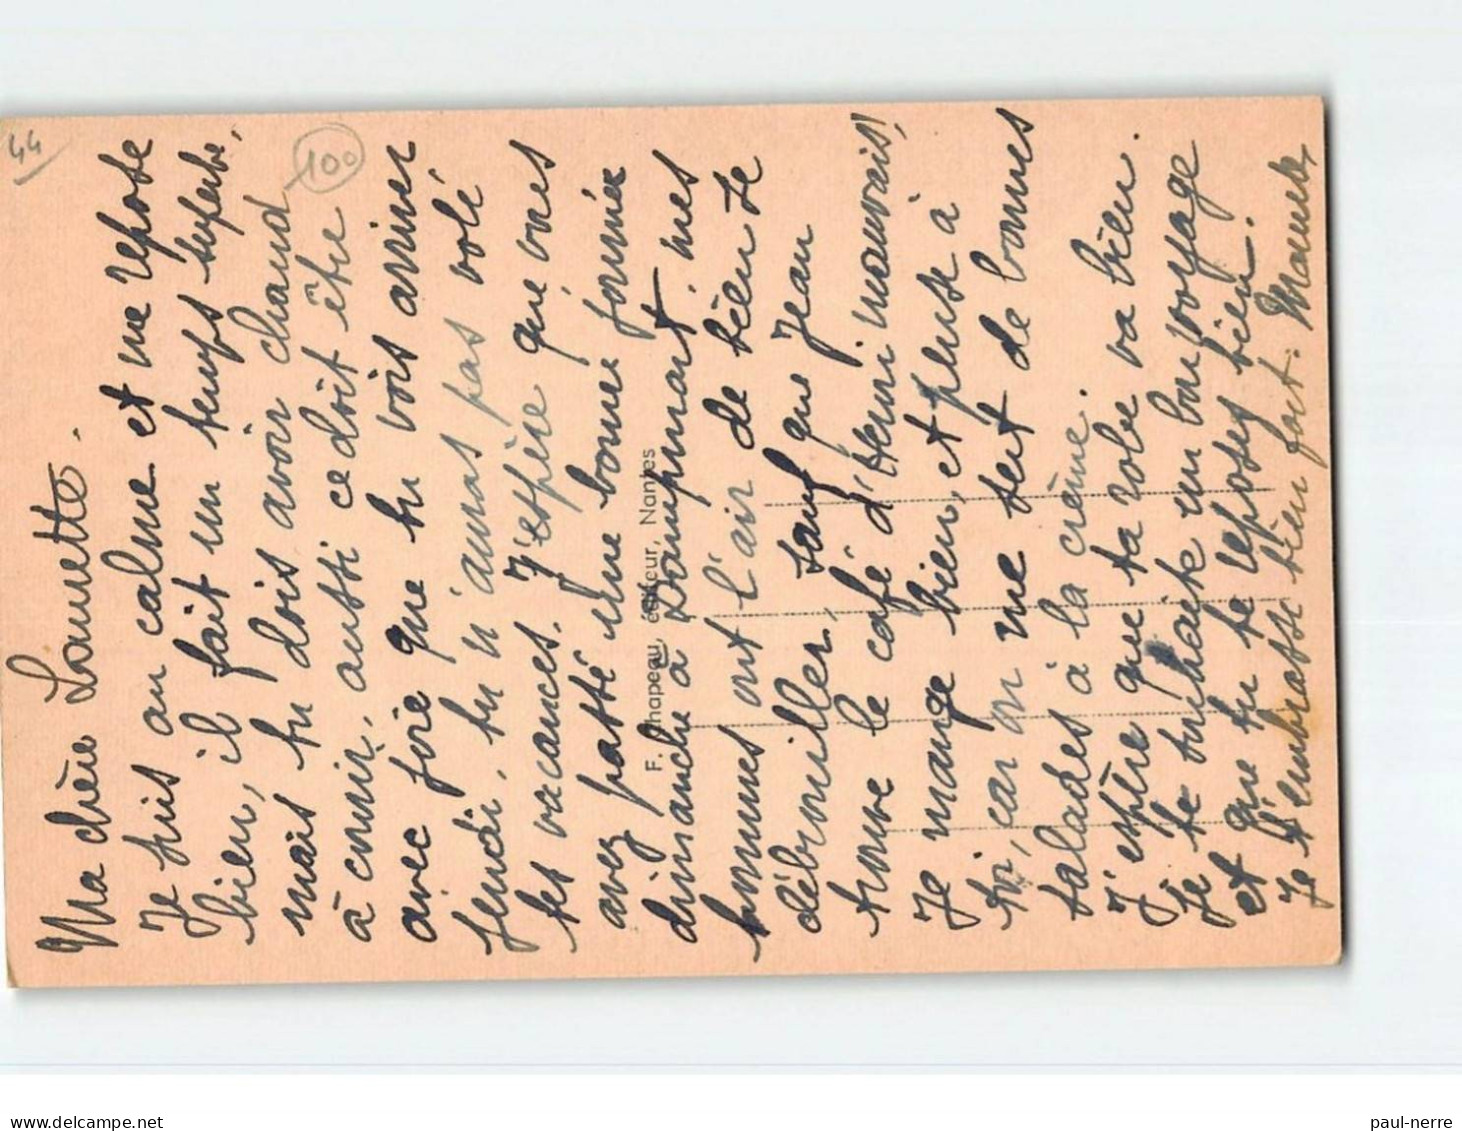 Ma chère Lounette.
Je suis au calme et me repose
bien, il fait un temps superbe,
mais tu dois avoir chaud
à courir, aussi ce doit être
avec joie que tu vois arriver
jeudi, tu n'auras pas volé
tes vacances. J'espère que vous
avez passé une bonne journée
dimanche à Dampmart, mes
hommes ont l'air de bien se
débrouiller, sauf que Jean
trouve le café d'Henri mauvais!
Je mange bien, et pense à
toi, car on me sert de bonnes
salades à la crème.
J'espère que ta robe va bien.
Je te souhaite un bon voyage
et que tu te reposes bien.
Je t'embrasse bien fort.
F. Chapeau, éditeur, Nantes
44
100
paul-nerre